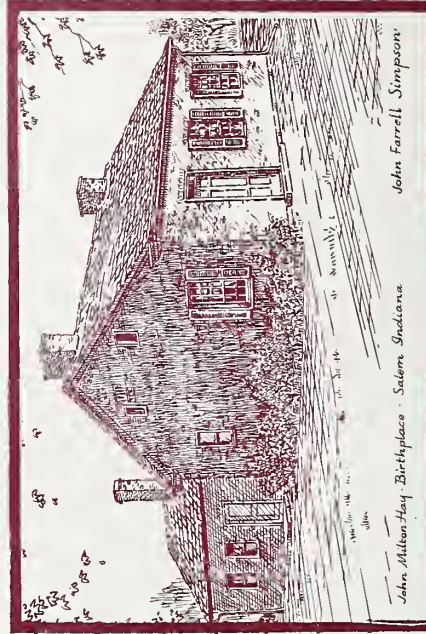 John Milton Hay · Birthplace · Salem Indiana
John Farrell Simpson